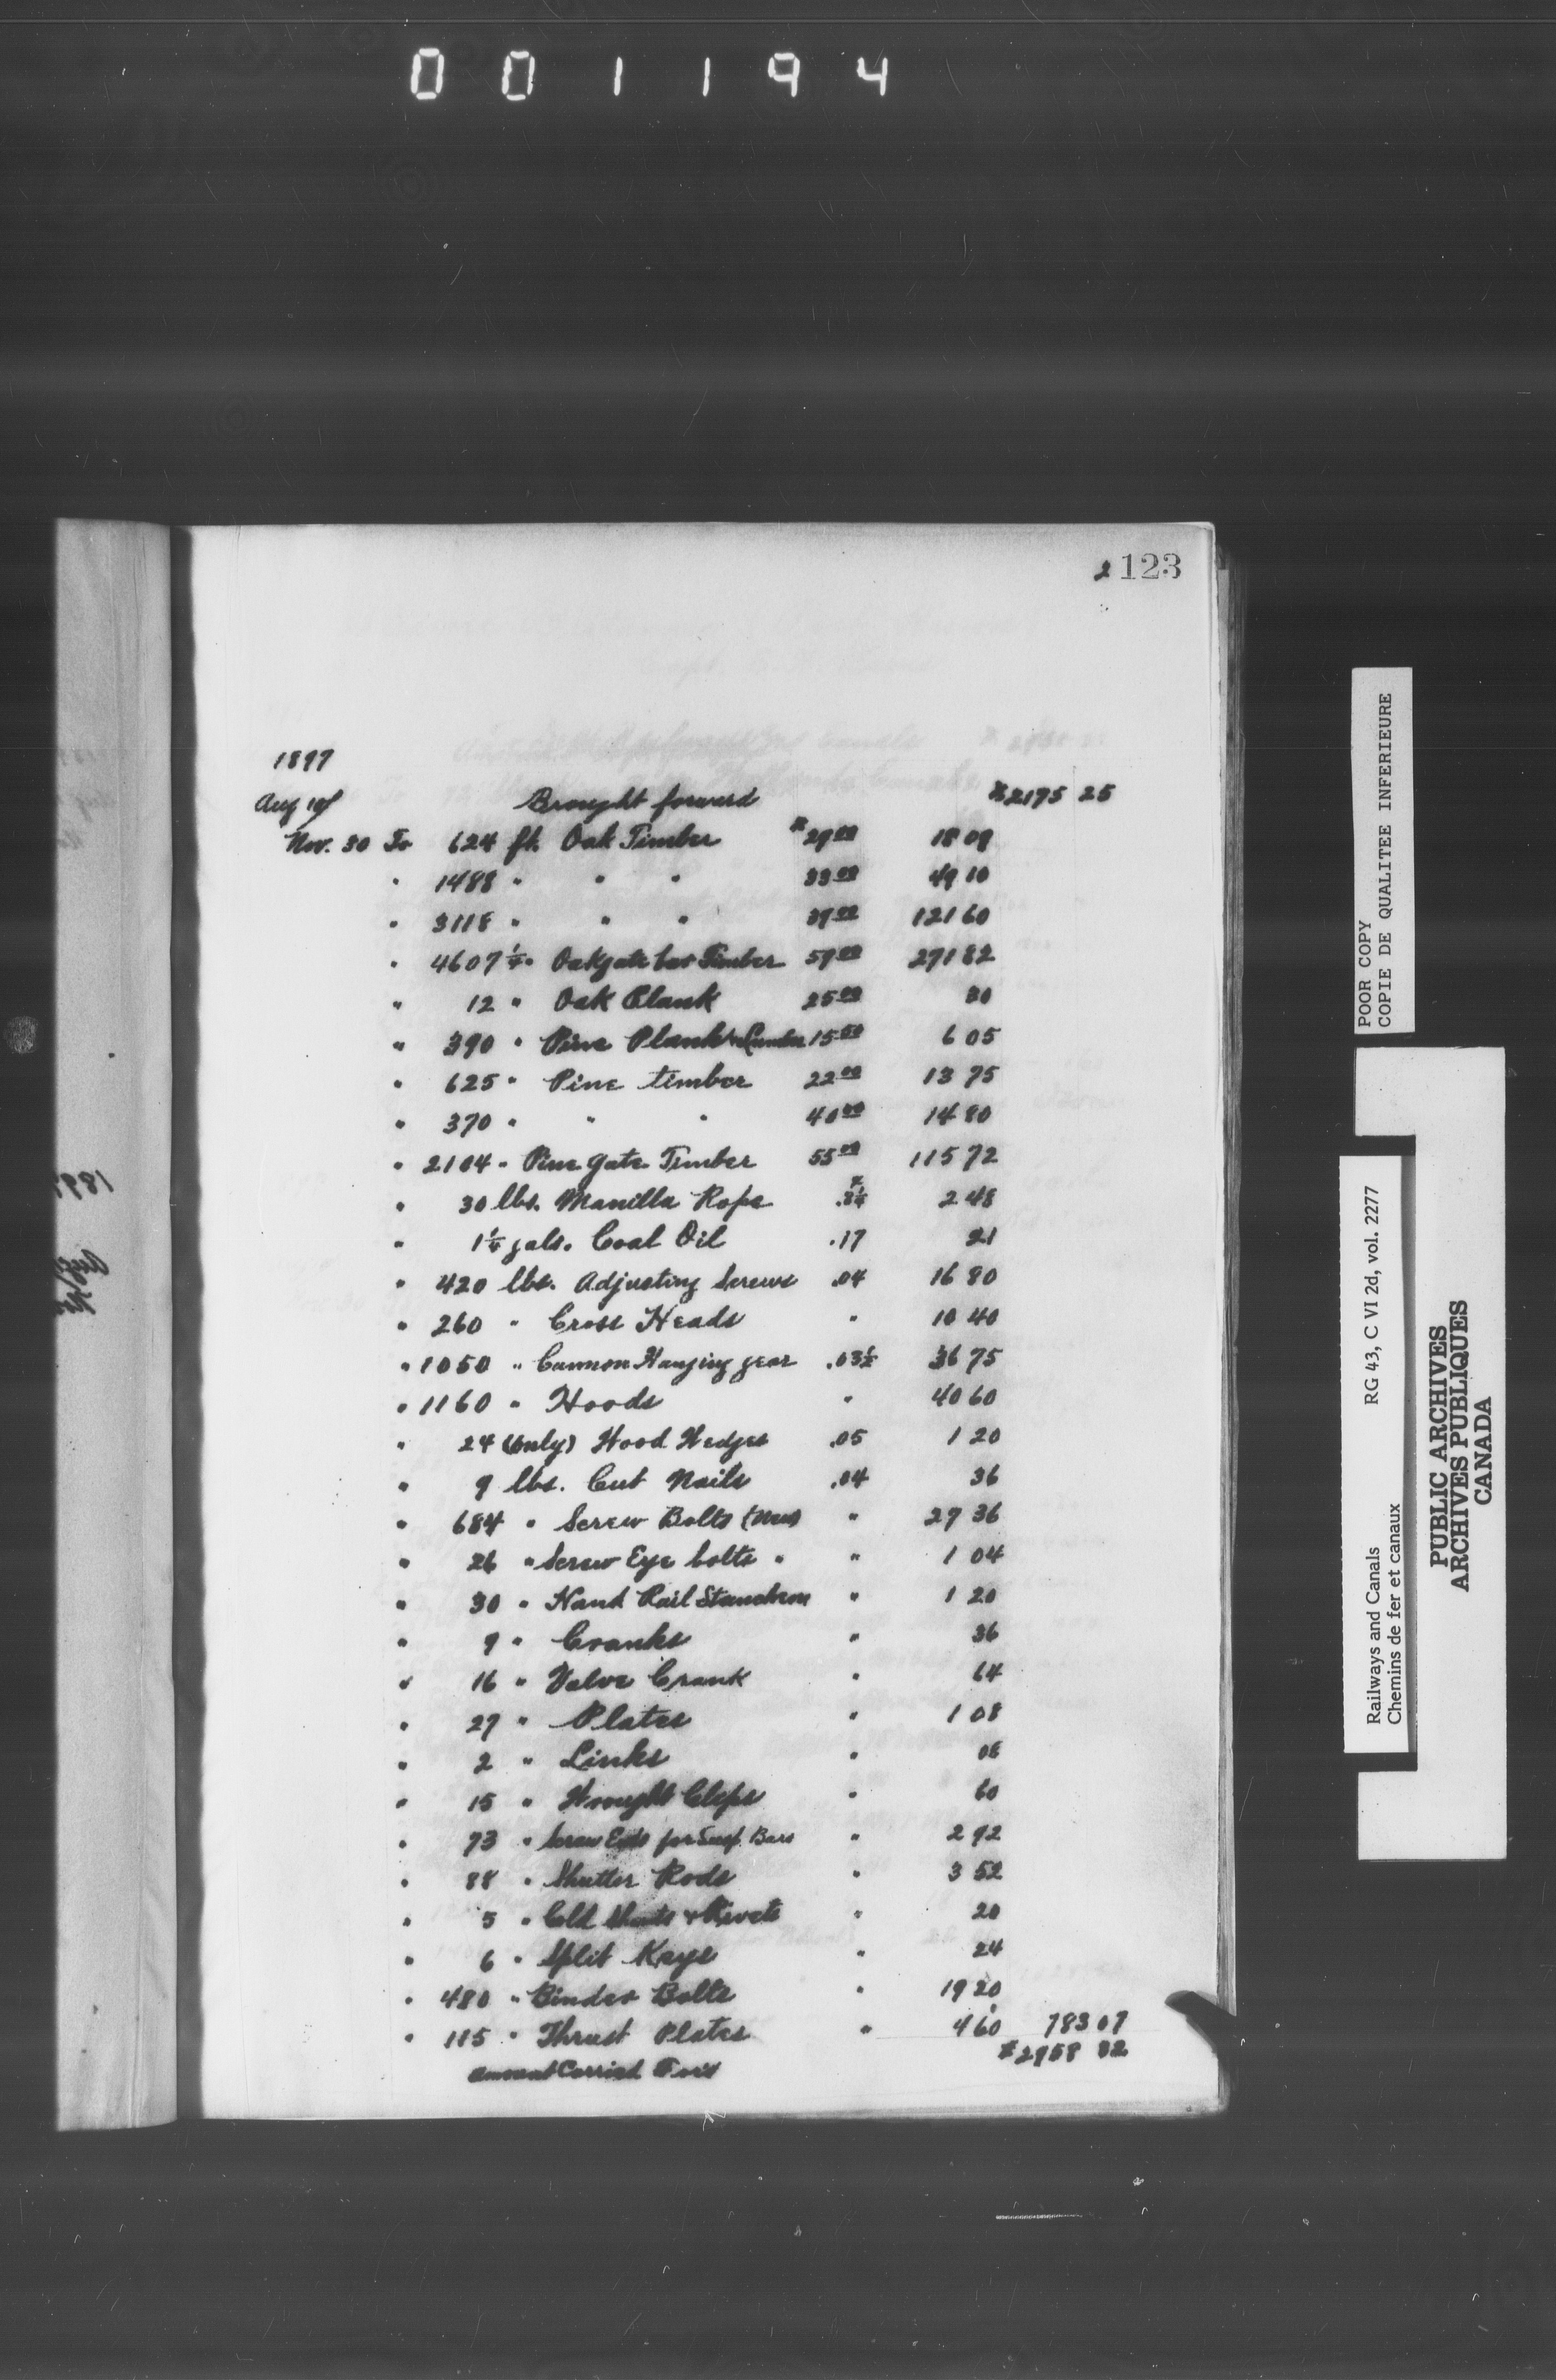 001194
2 123
1897
Aug 10/ Brought forward $2175 25
Nov. 30 To 624 ft. Oak Timber $29 00 18 09
" 1488 " " " 33 00 49 10
" 3118 " " " 39 00 121 60
" 4607 1/4 " Oak gate bar Timber 59 00 271 82
" 12 " Oak Plank 25 00 30
" 390 " Pine Plank & Lumber 15 50 6 05
" 625 " Pine timber 22 00 13 75
" 370 " " " 40 00 14 80
" 2104 " Pine gate Timber 55 00 115 72
" 30 lbs. Manilla Rope .8 1/4 2 48
" 1 1/4 gals. Coal Oil .17 21
" 420 lbs. Adjusting Screws .04 16 80
" 260 " Cross Heads " 10 40
" 1050 " Cannon Hanging gear .03 1/2 36 75
" 1160 " Hoods " 40 60
" 24 (only) Hood Wedges .05 1 20
" 9 lbs. Cut Nails .04 36
" 684 " Screw Bolts (New) " 27 36
" 26 " Screw Eye bolts " " 1 04
" 30 " Hand Rail Stancheon " 1 20
" 9 " Cranks " 36
" 16 " Valve Crank " 64
" 27 " Plates " 1 08
" 2 " Links " 08
" 15 " Wrought Clips " 60
" 73 " Screw Ends for Susp. Bars " 2 92
" 88 " Shutter Rods " 3 52
" 5 " Cold Shuts & Rivets " 20
" 6 " Split Keys " 24
" 480 " Binder Bolts " 19 20
" 115 " Thrust Plates " 4 60 783 07
Amount Carried For'd $2958 32
POOR COPY
COPIE DE QUALITEE INFERIEURE
RG 43, C VI 2d, vol. 2277
Railways and Canals
Chemins de fer et canaux
PUBLIC ARCHIVES
ARCHIVES PUBLIQUES
CANADA